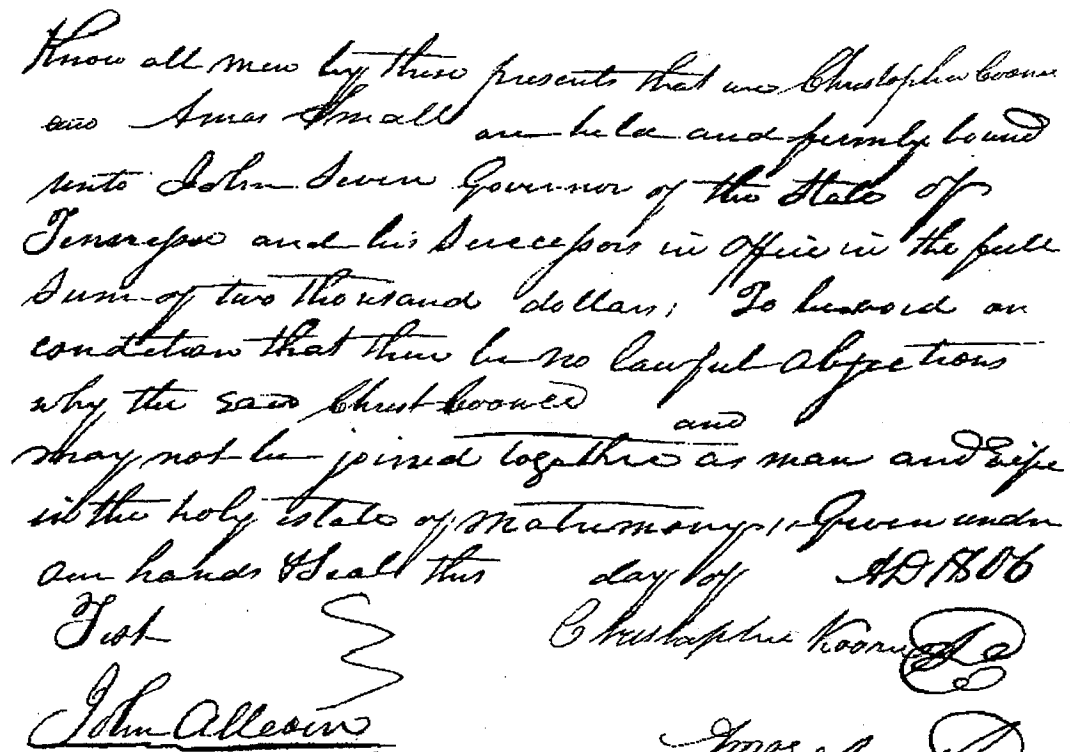 Know all men by these presents that we Christopher Coone
and Amas Small are held and firmly bound
unto John Sevier Governor of the State of
Tennessee and his Successors in Office in the full
Sum of two thousand dollars; To be void on
condition that there be no lawful objections
why the said Christ Coone and
may not be joined together as man and wife
in the holy estate of Matrimony, Given under
our hands & Seal this day of AD 1806
Test Christopher Koone
John Allcorn Amas